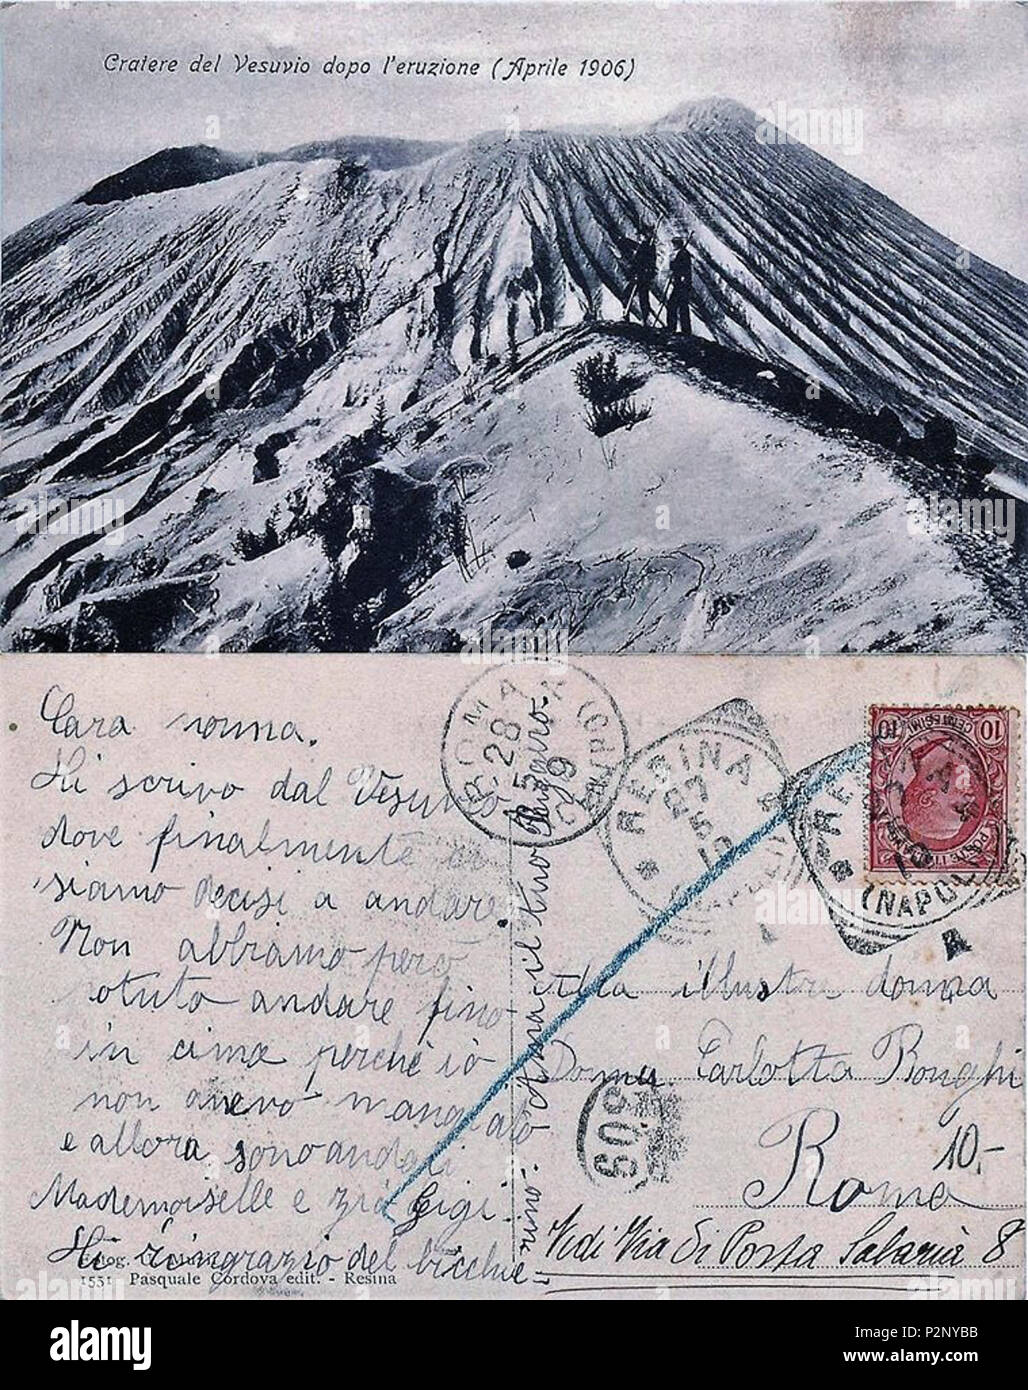 Cratere del Vesuvio dopo l'eruzione (Aprile 1906)
Cara nonna.
Ti scrivo dal Vesuvio
dove finalmente ci
siamo decisi a andare.
Non abbiamo però
potuto andare fino
in cima perché io
non avevo mangiato
e allora sono andati
Mademoiselle e zia Gigi.
Ti ringrazio del bicchie-
rino-
Ama il tuo
Ruggero-
1531 Pasquale Cordova edit. - Resina
ROMA
28
5
09
RESINA
(NAPOLI)
10 CENTESIMI 10
POSTE ITALIANE
(NAPOLI)
Alla illustre donna
Donna Carlotta Bonghi
609
Roma
10.-
Vedi Via Di Porta Salaria 8
alamy
Image ID: P2NYBB
www.alamy.com